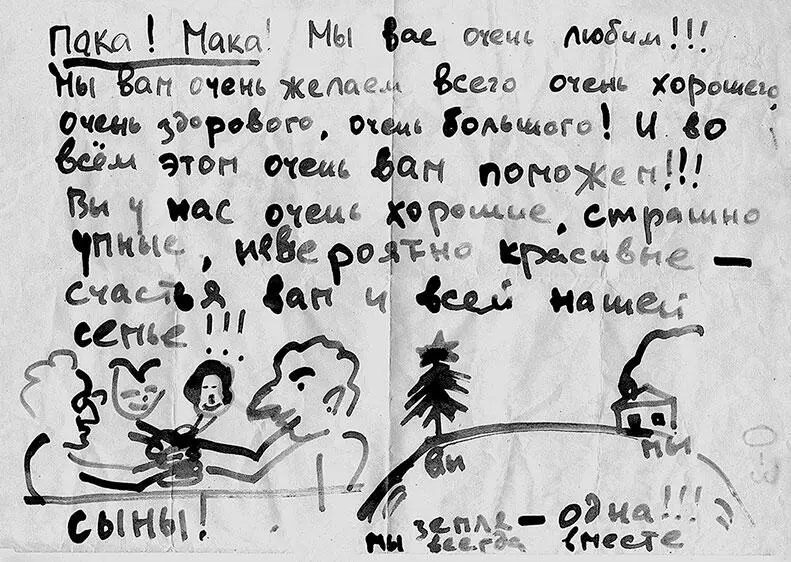 Пака! Мака! Мы вас очень любим!!!
Мы вам очень желаем всего очень хорошего,
очень здорового, очень большого! И во
всём этом очень вам поможем!!!
Вы у нас очень хорошие, страшно
упные, невероятно красивые —
счастья вам и всей нашей
семье!!!
вы
мы
СЫНЫ!
земля — одна!!!
мы всегда вместе